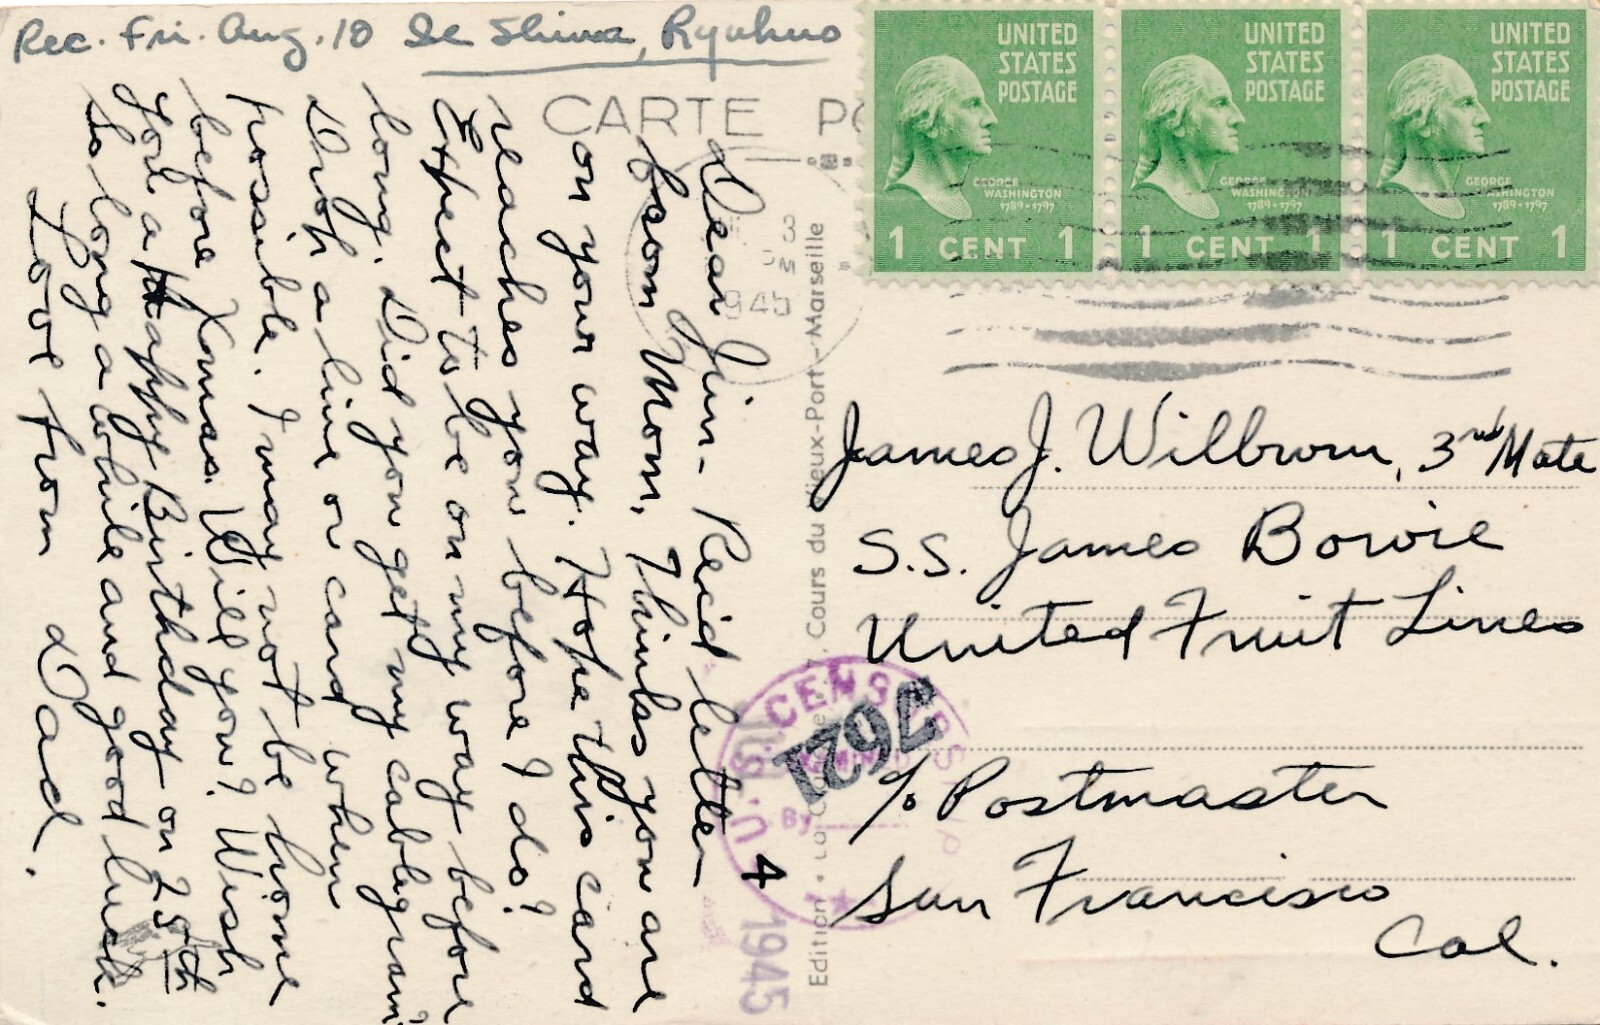 Rec. Fri. Aug. 10 Ie Shima, Ryukus
CARTE PO
UNITED STATES POSTAGE
GEORGE WASHINGTON
1789-1797
1 CENT 1
UNITED STATES POSTAGE
GEORGE WASHINGTON
1789-1797
1 CENT 1
UNITED STATES POSTAGE
GEORGE WASHINGTON
1789-1797
1 CENT 1
3
PM
1945
Dear Jim - Rec'd letter
from Mom. Thinks you are
on your way. Hope this card
reaches you before I do!
Expect to be on my way before
long. Did you get my cablegram?
Drop a line or card when
possible. I may not be home
before Xmas. Will you? Wish
you a Happy Birthday on 25th
So long a while and good luck.
Love from Dad.
Edition • La 7, Cours du Vieux-Port - Marseille
James J. Wilburn, 3rd Mate
S.S. James Bowie
United Fruit Lines
c/o Postmaster
San Francisco
Cal.
U.S. CENSORS
By
7621
4
1945